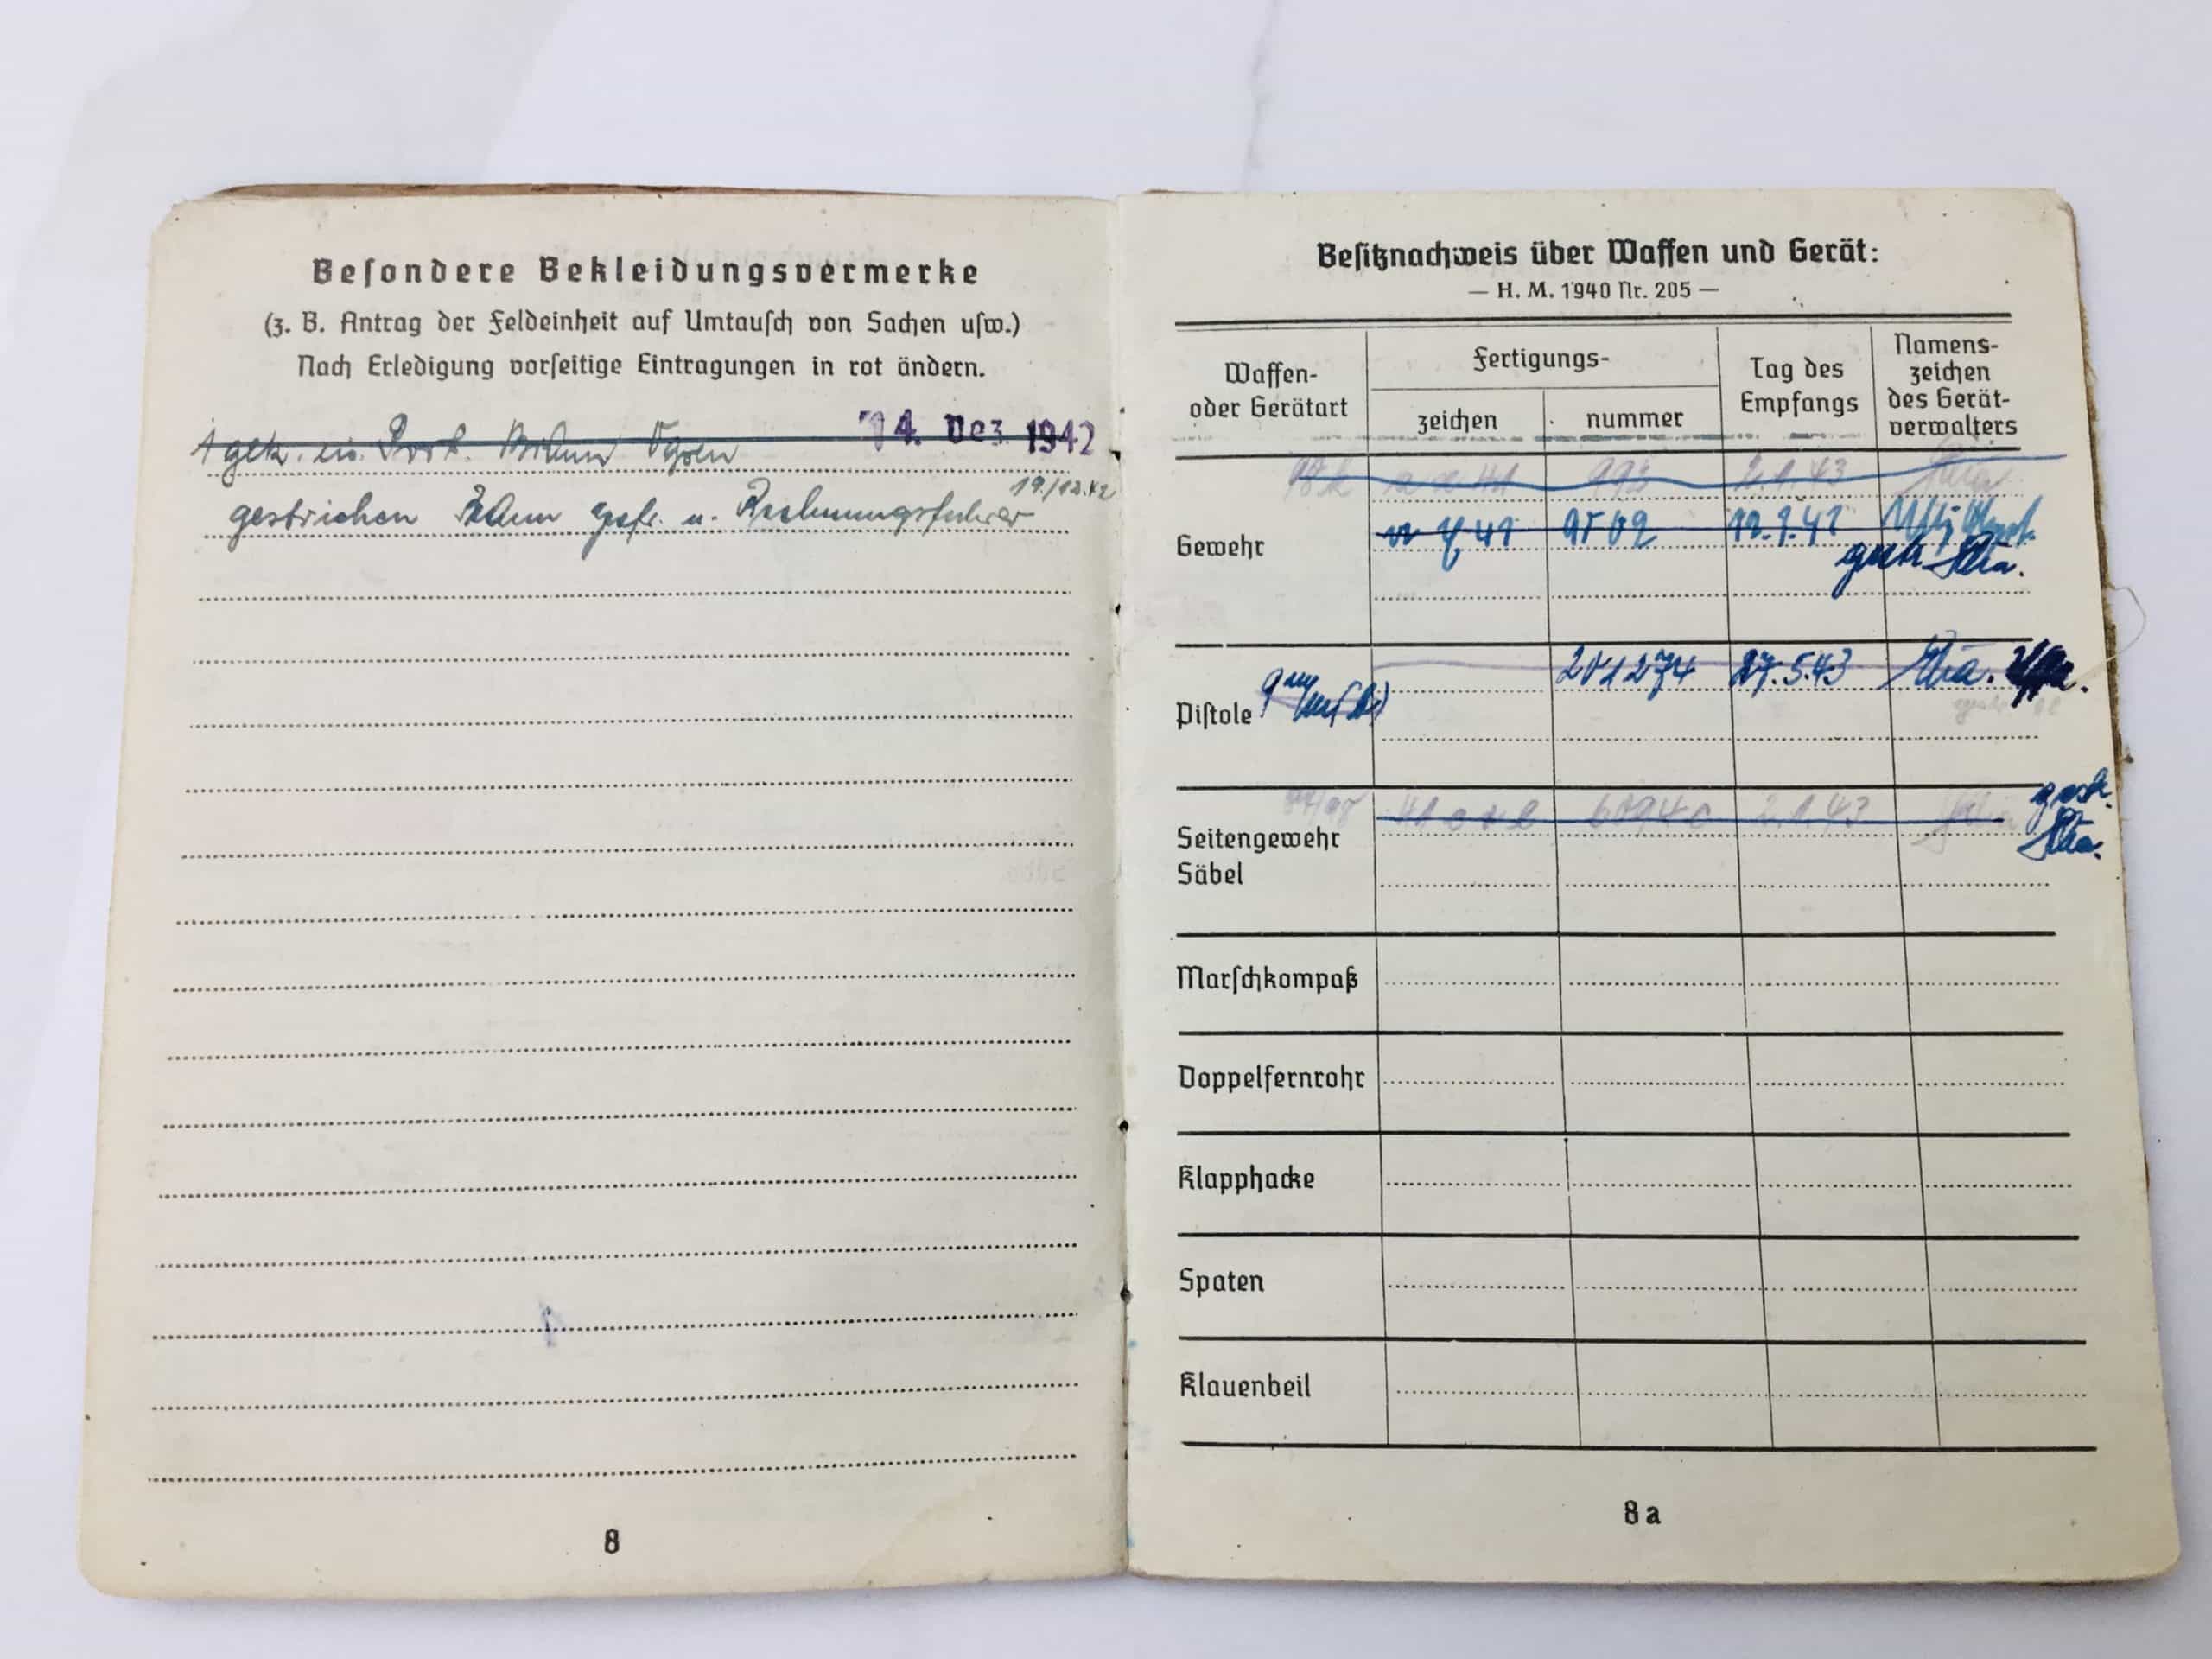 Besondere Bekleidungsvermerke
(z. B. Antrag der Feldeinheit auf Umtausch von Sachen usw.)
Nach Erledigung vorseitige Eintragungen in rot ändern.
14. Dez 1942
19/12.42
gestrichen gefr. u. Rechnungsführer
8
Besitznachweis über Waffen und Gerät:
— H. M. 1940 Nr. 205 —
Waffen- oder Gerätart
Fertigungs-
zeichen
nummer
Tag des Empfangs
Namens-zeichen des Gerät-verwalters
98k 2.1.43
Gewehr 41
Pistole 201274 27.5.43
2.1.43
Seitengewehr
Säbel
Marschkompaß
Doppelfernrohr
Klapphacke
Spaten
Klauenbeil
8a